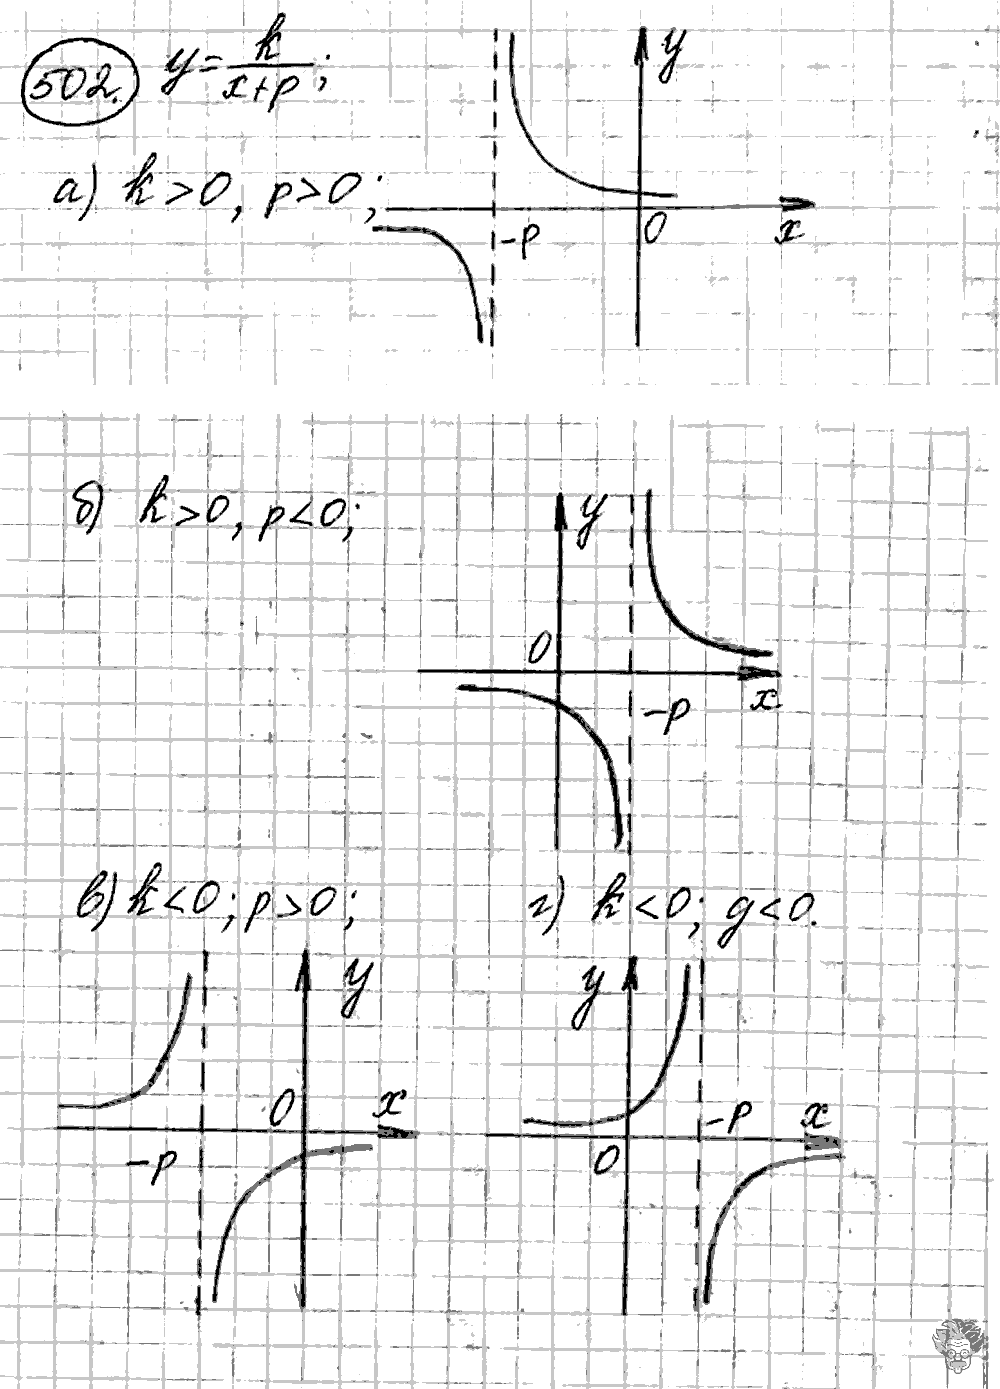 502. y = k/(x+p);
y
а) k>0, p>0;
-p 0 x
б) k>0, p<0;
y
0
-p x
в) k<0; p>0; г) k<0; g<0.
y y
0 x -p x
-p 0